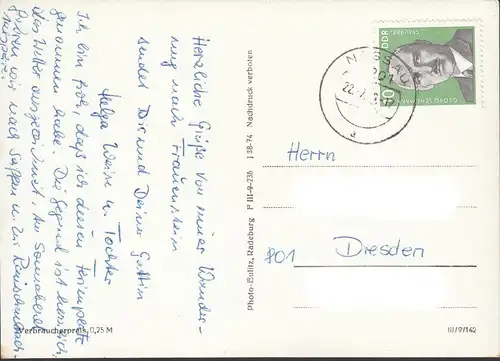 Herzliche Grüße von meiner Wander-
ung nach Frauenstein
sendet Dir und Deiner Gattin
Helga Weise u. Tochter
Ich bin froh, daß ich diesen Ferienplatz
genommen habe. Die Gegend ist herrlich,
das Wetter ausgezeichnet. Am Sonnabend
fahren wir nach Sayda u. zur
Verbraucherpreis 0,75 M
Photo-Bulitz, Radeburg P III-9-236 J 38-74 Nachdruck verboten
DDR
10
NASSAU
9201
22.7.
a
Herrn
801 Dresden
III/9/142